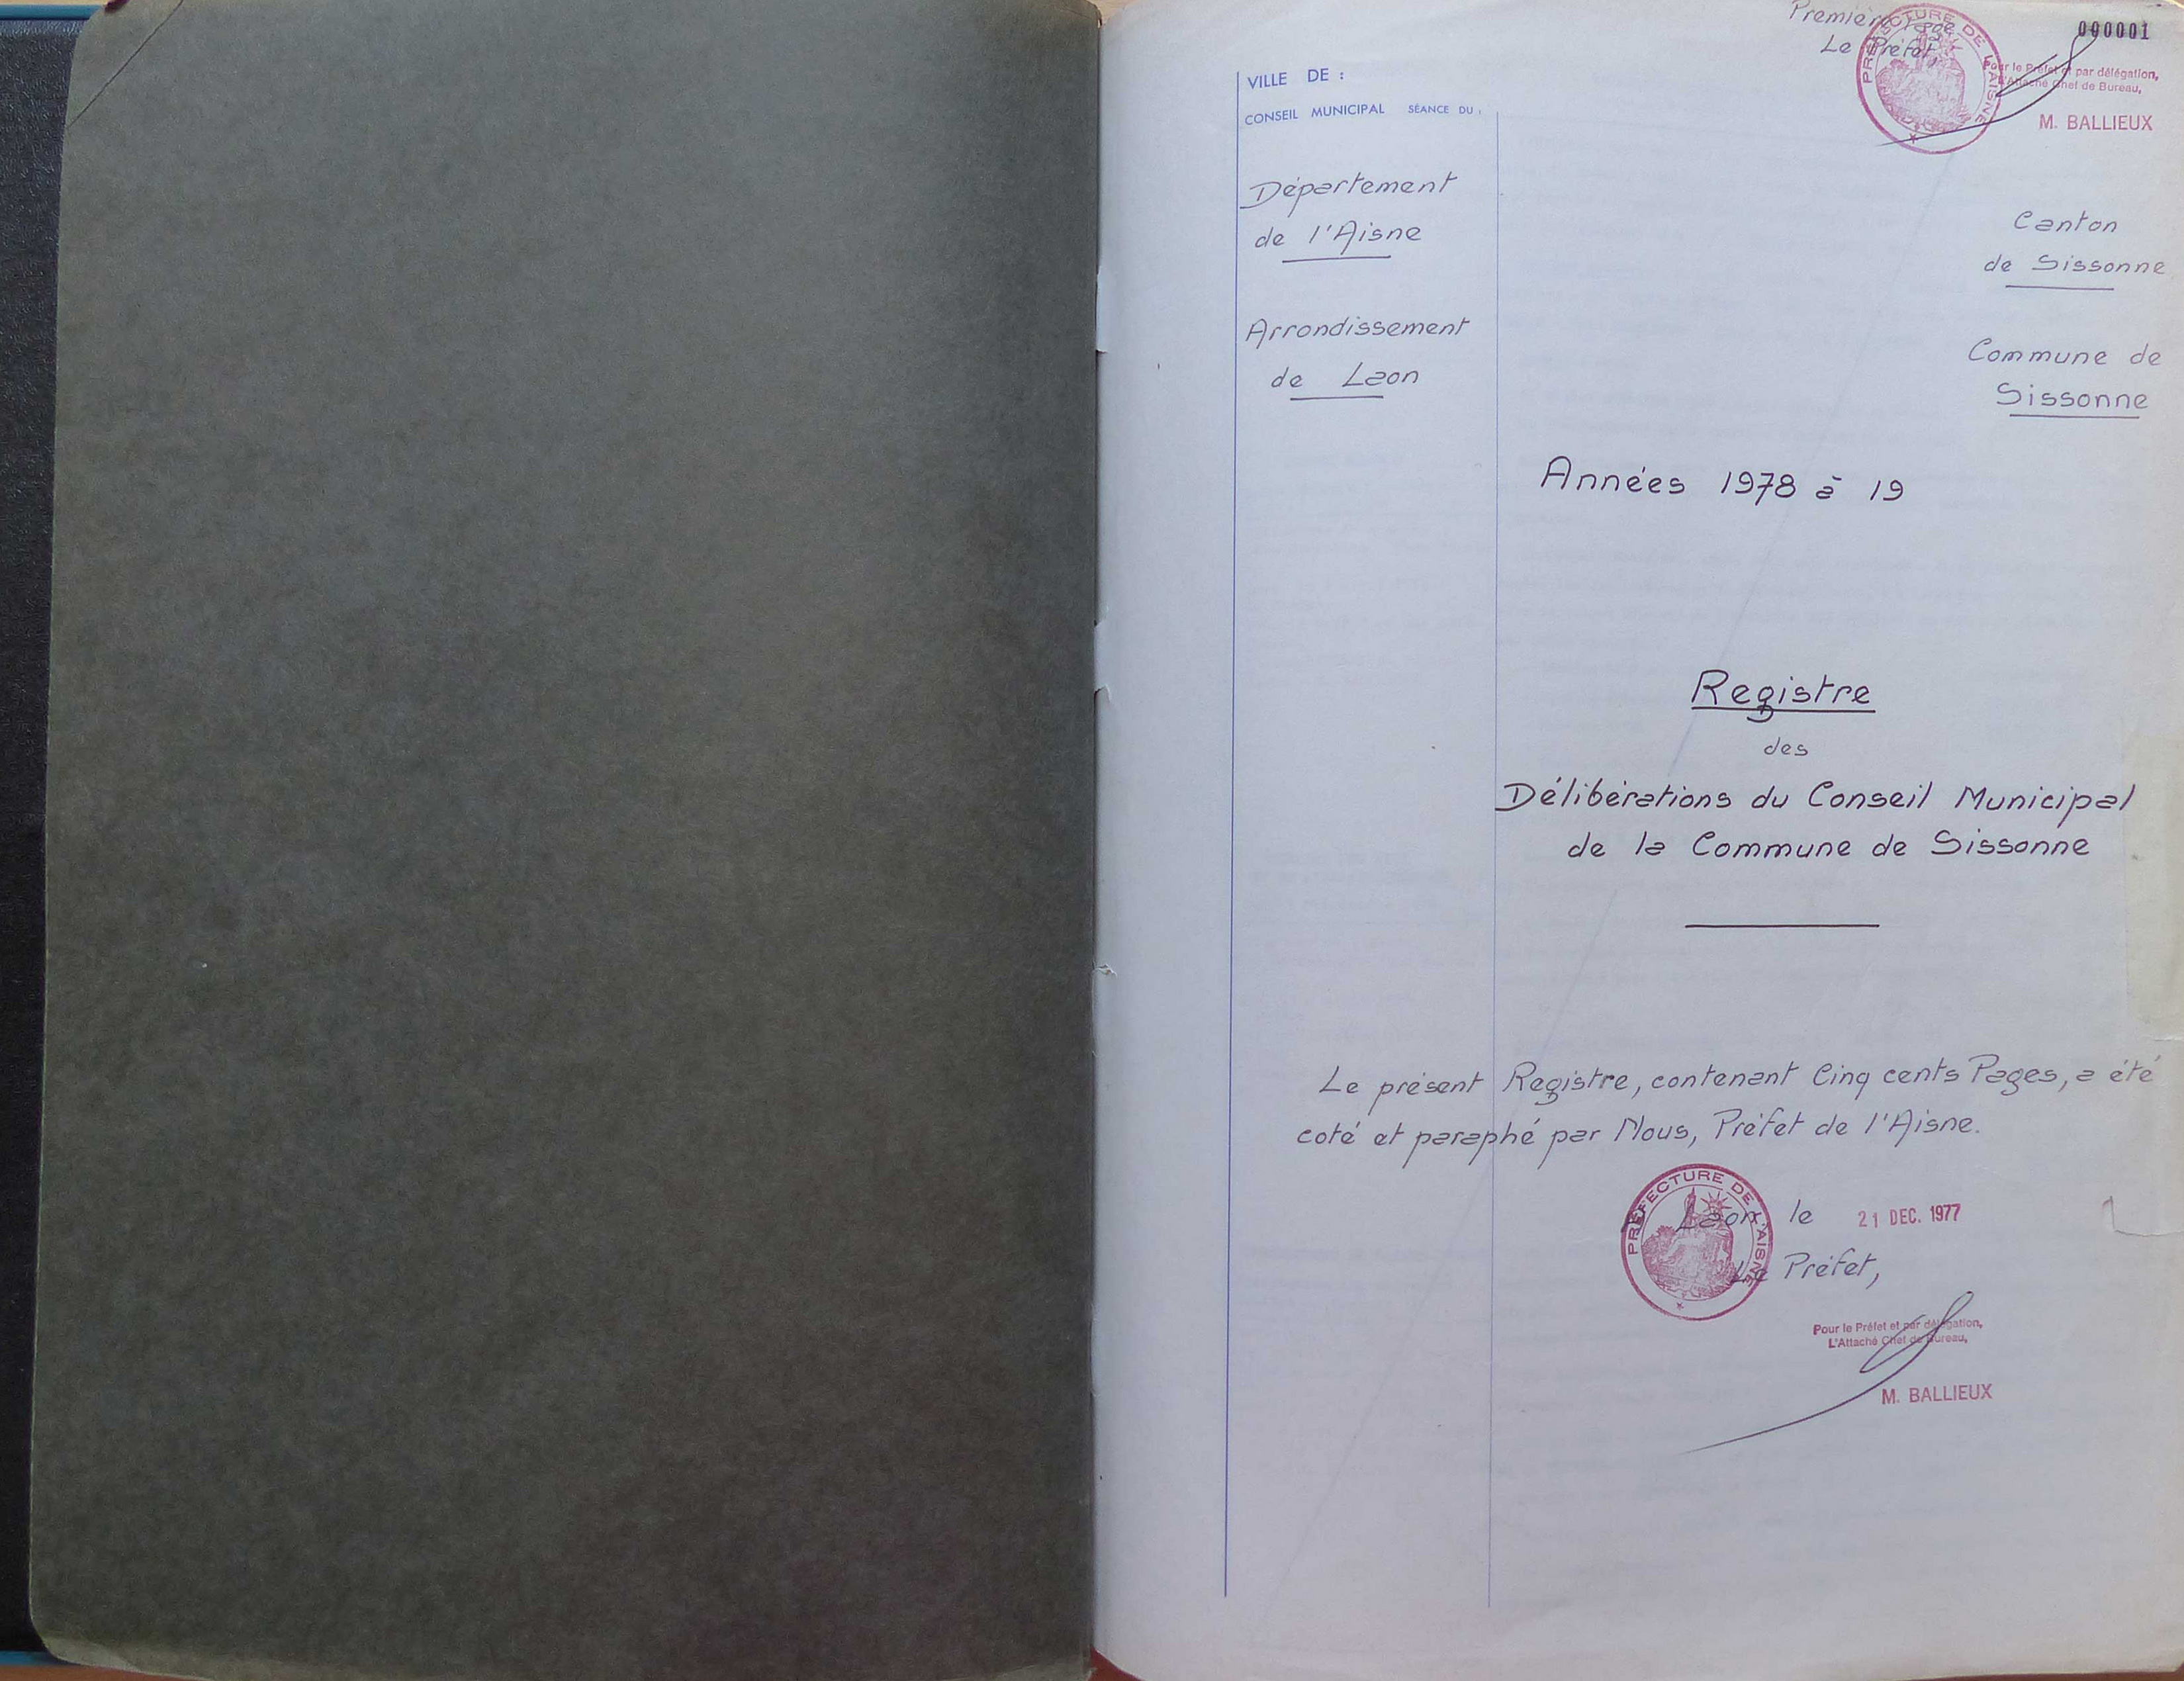 Première Page
Le Préfet,
000001
PRÉFECTURE DE L'AISNE
Pour le Préfet et par délégation,
L'Attaché Chef de Bureau,
M. BALLIEUX
VILLE DE :
CONSEIL MUNICIPAL SÉANCE DU :
Département
de l'Aisne
Canton
de Sissonne
Arrondissement
de Laon
Commune de
Sissonne
Années 1978 à 19
Registre
des
Délibérations du Conseil Municipal
de la Commune de Sissonne
Le présent Registre, contenant Cinq cents Pages, a été
coté et paraphé par Nous, Préfet de l'Aisne.
PRÉFECTURE DE L'AISNE
Laon, le 21 DEC. 1977
Le Préfet,
Pour le Préfet et par délégation,
L'Attaché Chef de Bureau,
M. BALLIEUX